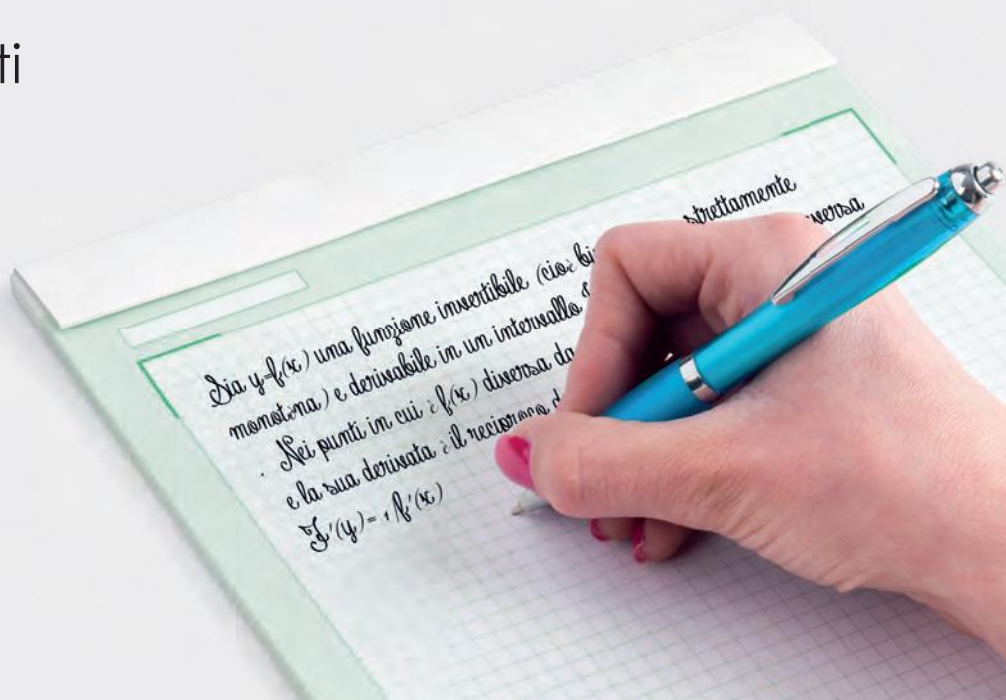 ti
Sia y=f(x) una funzione invertibile (cioè bi strettamente
monotòna) e derivabile in un intervallo versa
. Nei punti in cui è f(x) diversa da
e la sua derivata è il reciproco d
F'(y)= 1 f'(x)